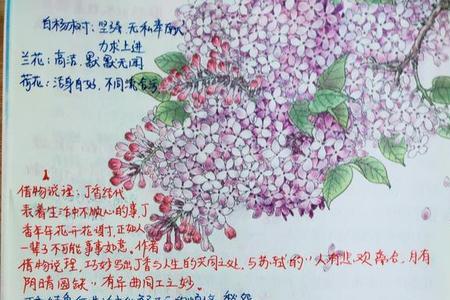 白杨树：坚强，无私奉献
力求上进
兰花：高洁，默默无闻
荷花：洁身自好，不同流合污
借物说理：丁香结代
表着生活中不顺心的事，丁
香年年花开花谢时，正如人一
一辈子不可能事事如意，作者
借物说理，巧妙写出丁香与人生的共同之处，与苏轼的“人有悲欢离合，月有
阴晴圆缺”有异曲同工之妙。